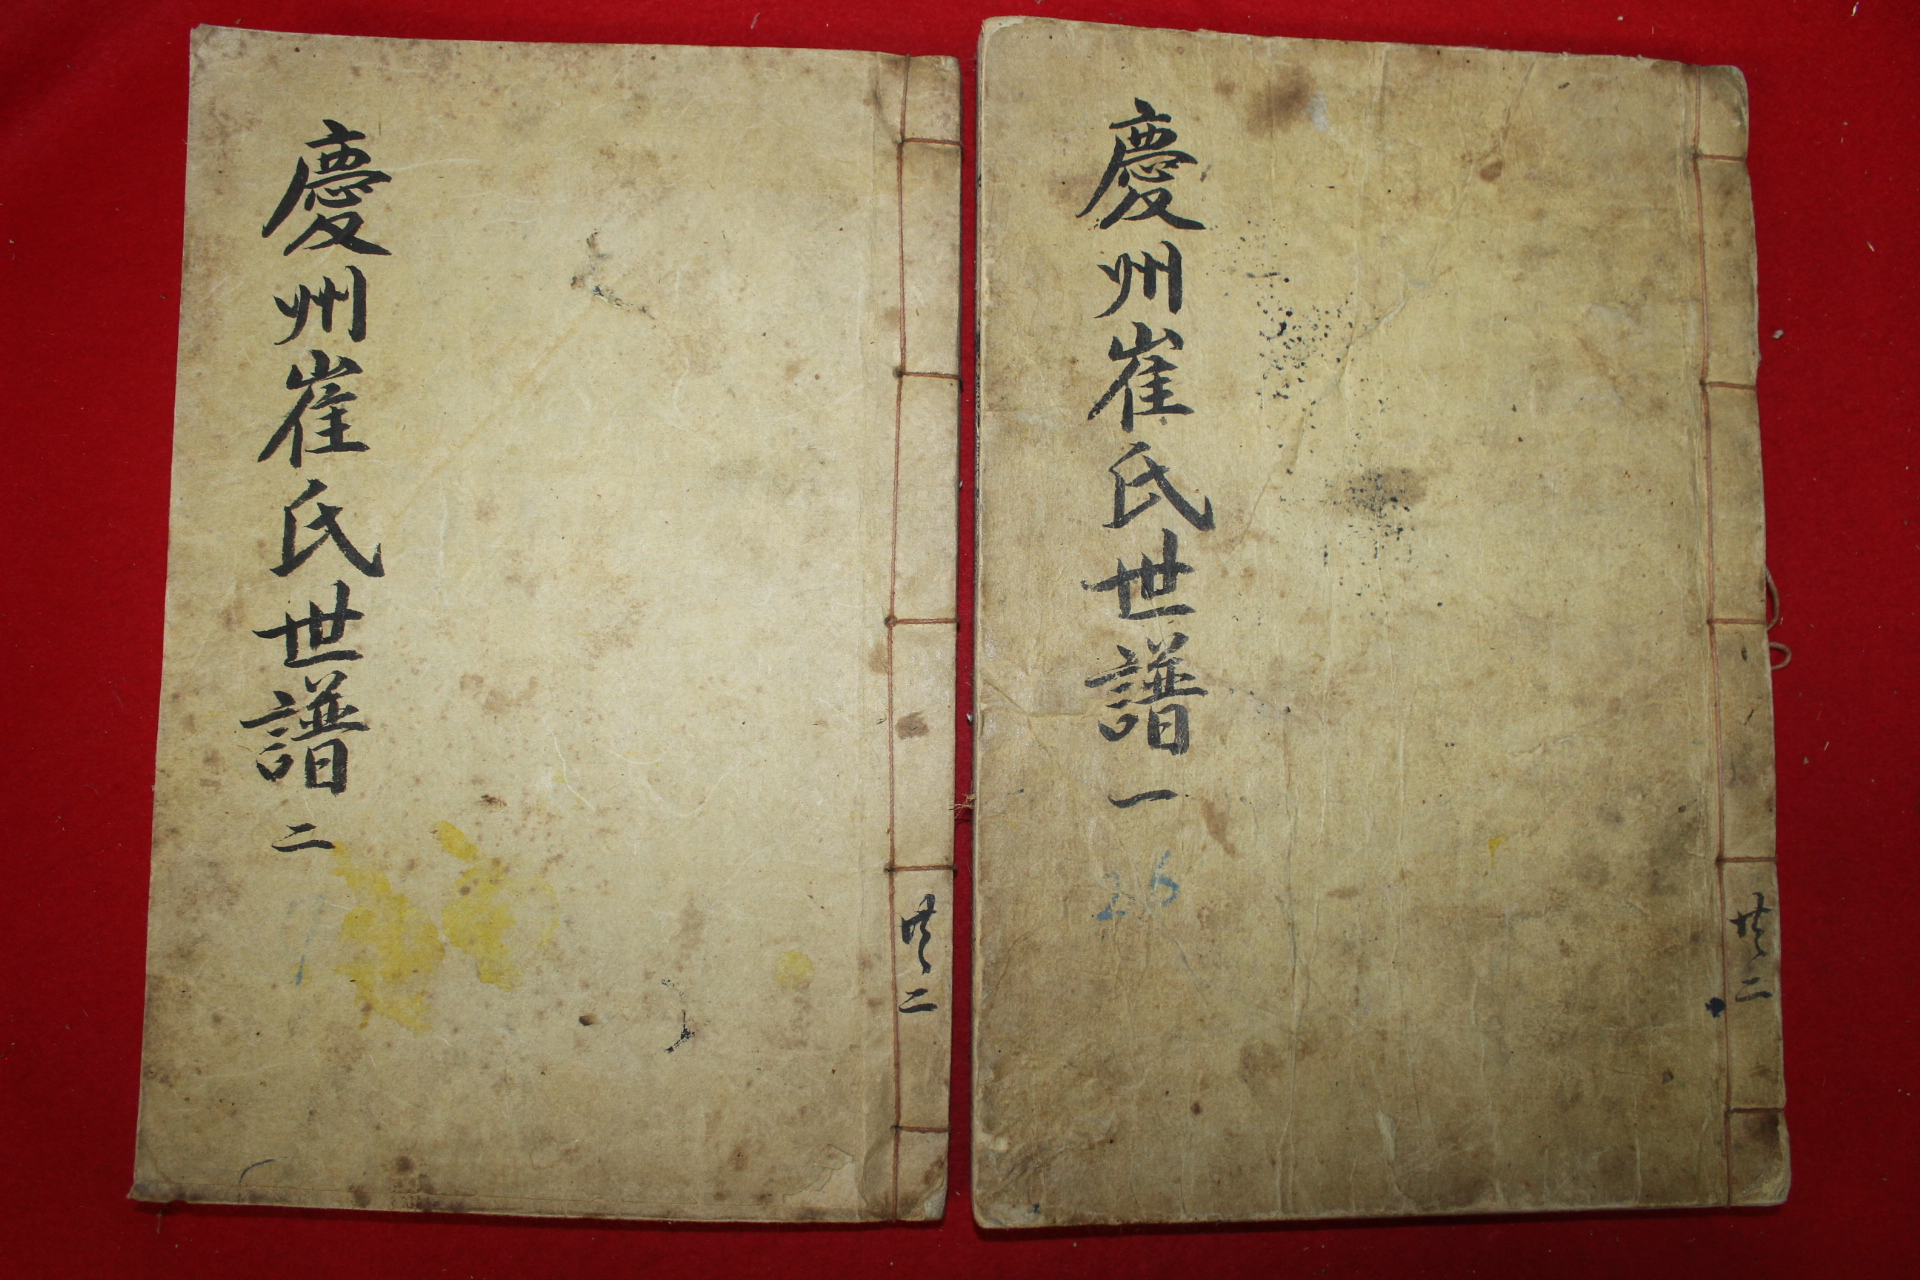 慶州崔氏世譜一
26
共二
慶州崔氏世譜二
共二